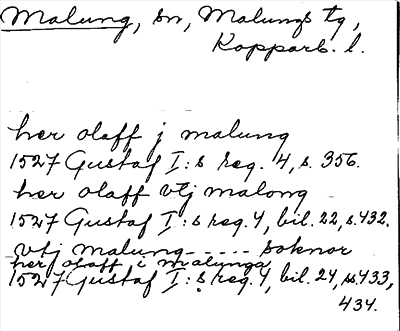 Malung, sn, Malungs tg,
Kopparb. l.
her olaff j malung
1527 Gustaf I:s reg. 4, s. 356.
her olaff vtj malong
1527 Gustaf I:s reg. 4, bil. 22, s. 432.
vtj malung - - - - - soknor
her olaff i malunga
1527 Gustaf I:s reg. 4, bil. 24, ss 433,
434.